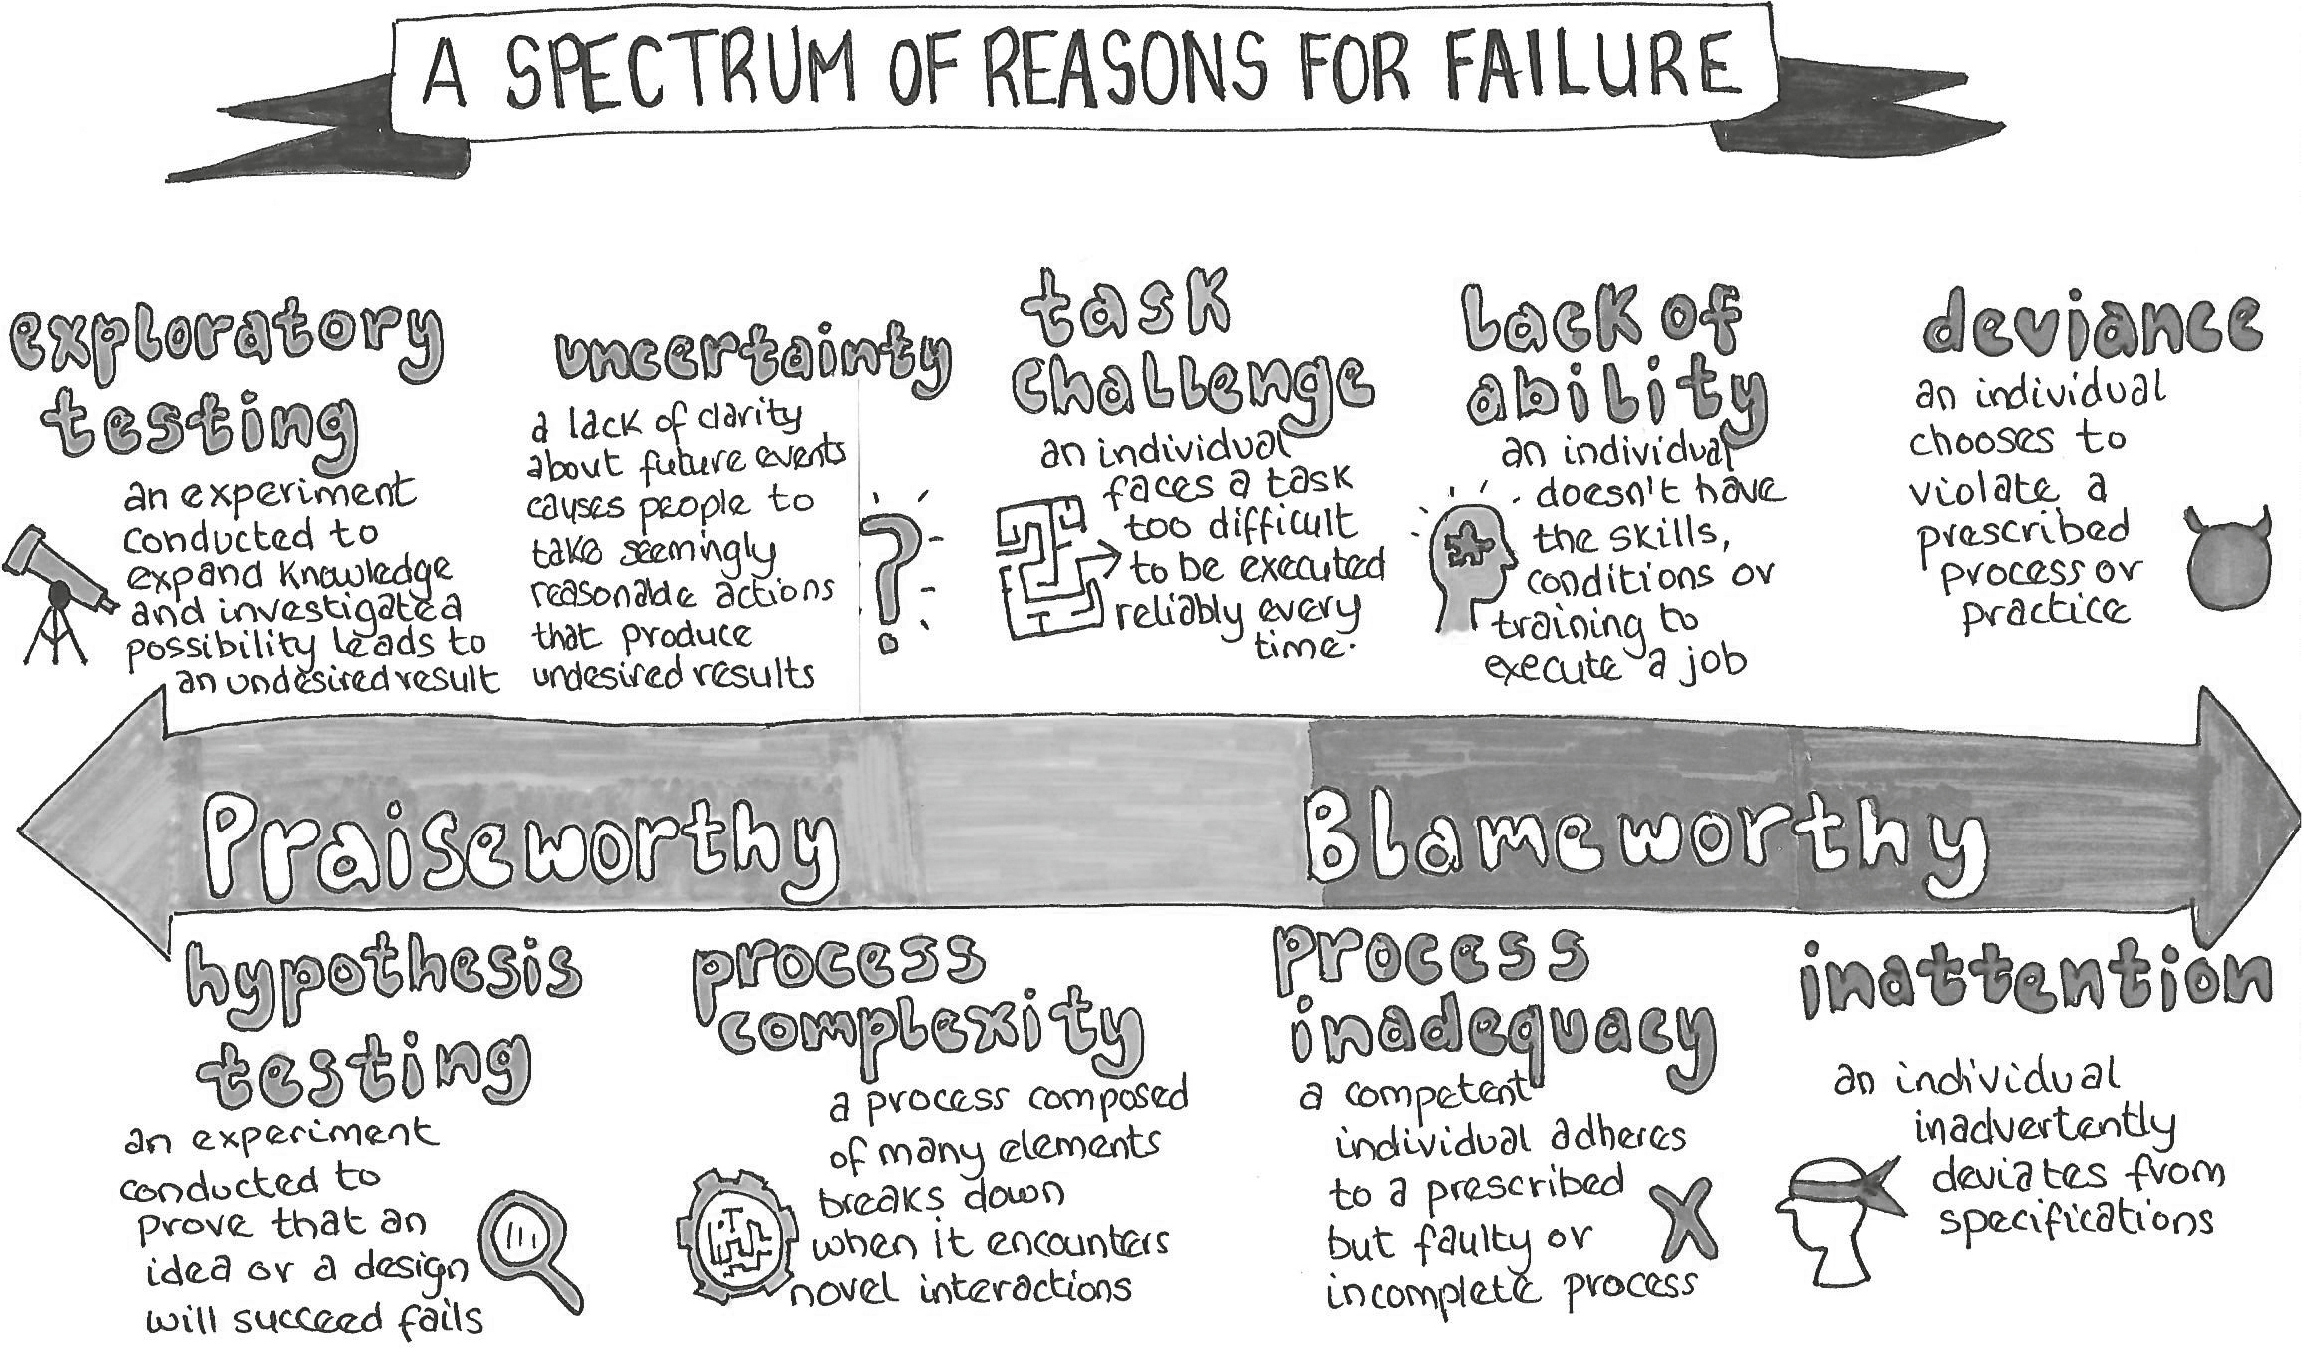 A SPECTRUM OF REASONS FOR FAILURE
exploratory
testing
an experiment
conducted to
expand knowledge
and investigate a
possibility leads to
an undesired result
uncertainty
a lack of clarity
about future events
causes people to
take seemingly
reasonable actions
that produce
undesired results
?
task
challenge
an individual
faces a task
too difficult
to be executed
reliably every
time.
lack of
ability
an individual
doesn't have
the skills,
conditions or
training to
execute a job
deviance
an individual
chooses to
violate a
prescribed
process or
practice
Praiseworthy
Blameworthy
hypothesis
testing
an experiment
conducted to
prove that an
idea or a design
will succeed fails
process
complexity
a process composed
of many elements
breaks down
when it encounters
novel interactions
process
inadequacy
a competent
individual adheres
to a prescribed
but faulty or
incomplete process
inattention
an individual
inadvertently
deviates from
specifications